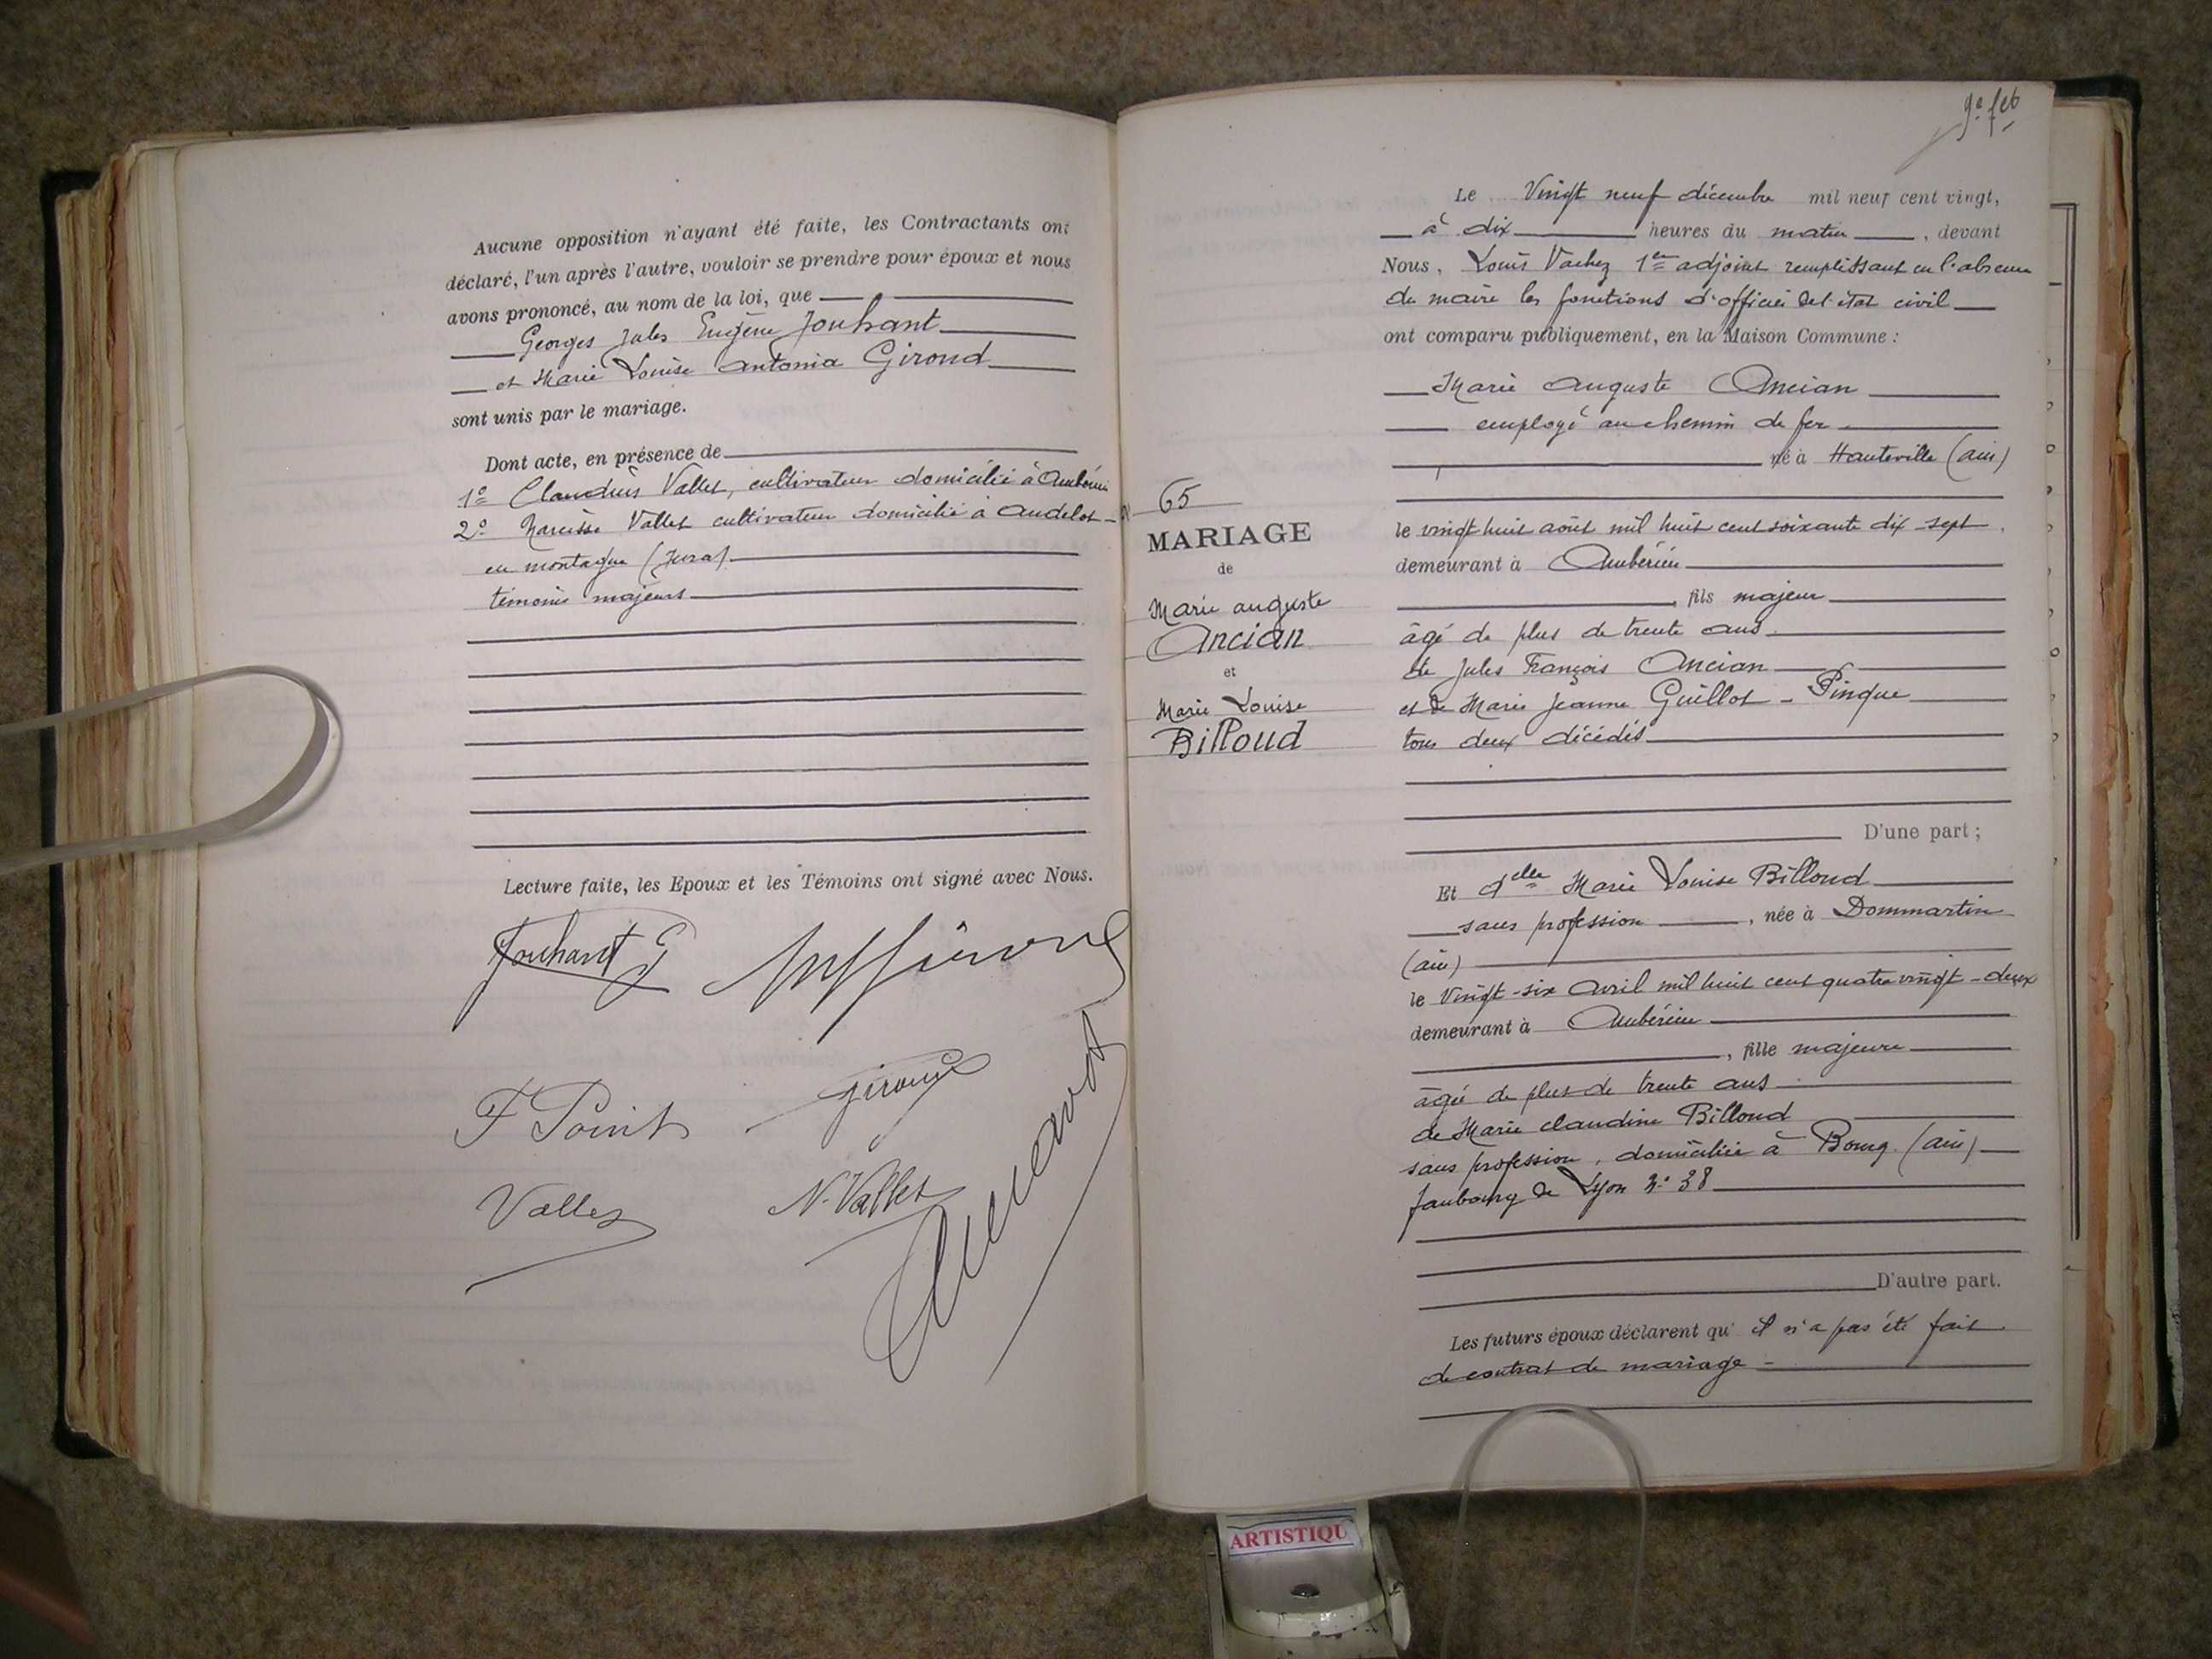 Aucune opposition n'ayant été faite, les Contractants ont
déclaré, l'un après l'autre, vouloir se prendre pour époux et nous
avons prononcé, au nom de la loi, que
Georges Jules Eugène Jouhant
et Marie Louise Antonia Giroud
sont unis par le mariage.
Dont acte, en présence de
1º Claudius Vallet, cultivateur domicilié à Ambérieu
2º Narcisse Vallet cultivateur domicilié à Andelot-
en montagne (Jura)
témoins majeurs
Lecture faite, les Epoux et les Témoins ont signé avec Nous.
Jouhant G
F Point
Giroud
Vallet
N. Vallet
65
MARIAGE
de
Marie Auguste
Ancian
et
Marie Louise
Billoud
Le Vingt neuf décembre mil neuf cent vingt,
à dix heures du matin, devant
Nous, Louis Vachez 1er adjoint remplissant en l'absence
du maire les fonctions d'officier de l'état civil
ont comparu publiquement, en la Maison Commune :
Marie Auguste Ancian
employé au chemin de fer
né à Hauteville (Ain)
le vingt huit août mil huit cent soixante dix-sept
demeurant à Ambérieu
, fils majeur
âgé de plus de trente ans
de Jules François Ancian
et de Marie Jeanne Guillot-Pingue
tous deux décédés
D'une part ;
Et Delle Marie Louise Billoud
sans profession, née à Dommartin
(Ain)
le Vingt-six Avril mil huit cent quatre vingt-deux
demeurant à Ambérieu
, fille majeure
âgée de plus de trente ans
de Marie Claudine Billoud
sans profession, domiciliée à Bourg (Ain)
faubourg de Lyon nº 38
D'autre part.
Les futurs époux déclarent qu'il n'a pas été fait
de contrat de mariage
ARTISTIQU